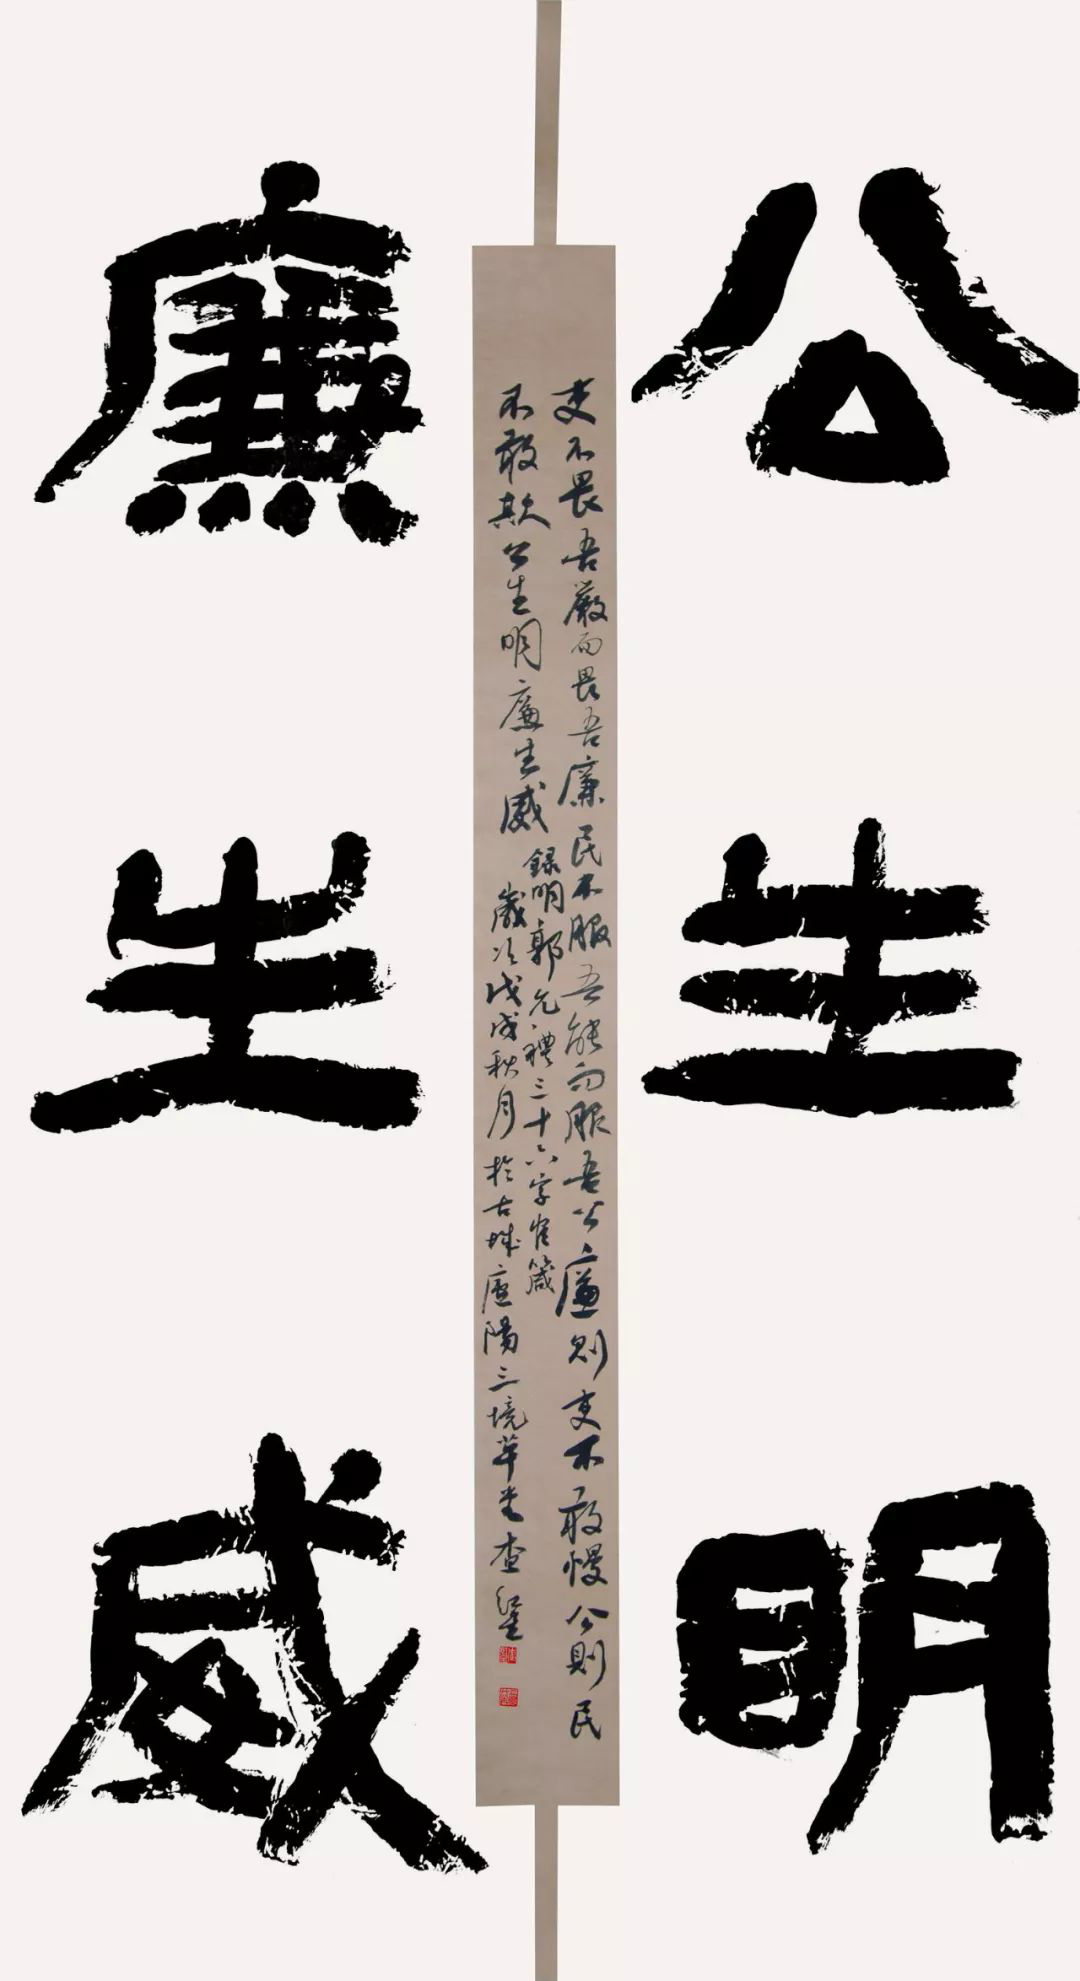 公生明
吏不畏吾嚴而畏吾廉民不服吾能而服吾公廉則吏不敢慢公則民
不敢欺公生明廉生威
録明郭允禮三十六字官箴
歲次戊戌秋月於古城廬陽三境草堂查
廉生威